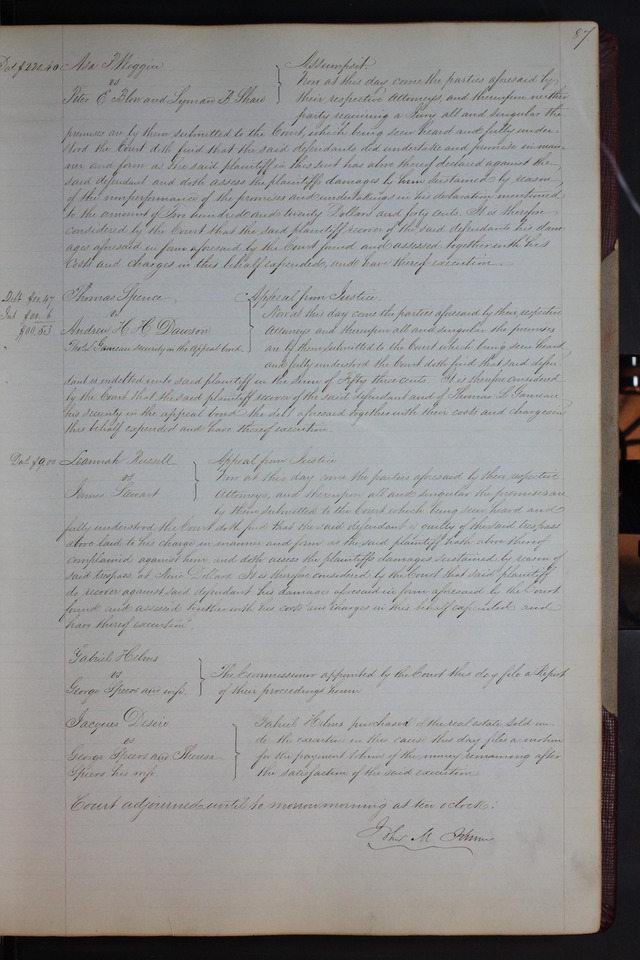 87
Dat $220.40 Asa Wiggin Assumpsit
vs Now at this day come the parties aforesaid by
Peter E Blow and Lyman B Shaw their respective Attorneys, and thereupon neither
party requiring a Jury all and singular the
premises are by them submitted to the Court, which being seen heard and fully under-
stood the Court doth find that the said defendants did undertake and promise in man-
ner and form as the said plaintiff in this suit has above thereof declared against the
said defendant and doth assess the plaintiffs damages by him sustained by reason
of the nonperformance of the promises and undertakings in his declaration mentioned
to the amount of Two hundred and twenty Dollars and forty cents. It is therefore
considered by the Court that the said plaintiff recover of the said defendants his dam-
ages aforesaid in form aforesaid by the Court found and assessed together with his
Costs and charges in this behalf expended, and have thereof execution.
Debt $00.47 Thomas Spence Appeal from Justice
Int $00.6 vs Now at this day come the parties aforesaid by their respective
$00.53 Andrew H H Dawson Attorneys and thereupon all and singular the premises
Thos L security in the Appeal bond are by them submitted to the Court which being seen heard
and fully understood the Court doth find that said defen-
dant is indebted unto said plaintiff in the sum of Fifty three cents. It is therefore considered
by the Court that the said plaintiff recover of the said defendant and of Thomas L
his security in the appeal bond the debt aforesaid together with their costs and charges in
this behalf expended and have thereof execution.
Dat $9.00 Leannah Russell Appeal from Justice
vs Now at this day come the parties aforesaid by their respective
James Stewart Attorneys, and thereupon all and singular the premises are
by them submitted to the Court which being seen heard and
fully understood the Court doth find that the said defendant is guilty of the said trespass
above laid to his charge in manner and form as the said plaintiff hath above thereof
complained against him and doth assess the plaintiffs damages sustained by reason of
said trespass at Nine Dollars. It is therefore considered by the Court that said plaintiff
do recover against said defendant his damages aforesaid in form aforesaid by the Court
found and assessed together with his costs and charges in this behalf expended and
have thereof execution.
Gabriel Helms
vs The Commissioner appointed by the Court this day file a Report
George Speers and wife of their proceedings herein
Jacques Desire Gabriel Helms purchaser of the real estate sold un-
vs der the execution in this cause this day files a motion
George Speers and Theresa for the payment to him of the money remaining after
Speers his wife the satisfaction of the said execution
Court adjourned until to morrow morning at ten o'clock.
John M